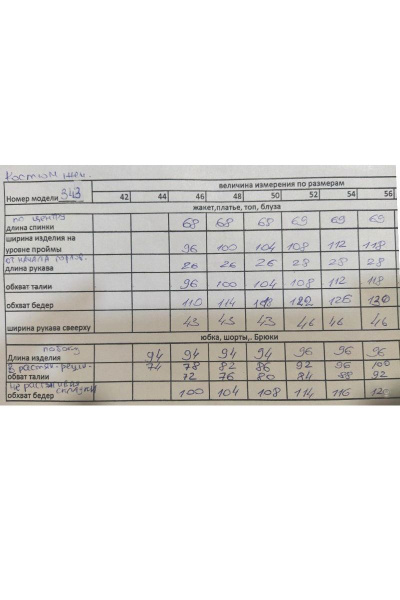 Костюм жен.
величина измерения по размерам
Номер модели 343 42 44 46 48 50 52 54 56
жакет,платье, топ, блуза
по центру
длина спинки 68 68 68 69 69 69
ширина изделия на
уровне проймы 96 100 104 108 112 118
от начала горлов.
длина рукава 26 26 26 28 28 28
обхват талии 96 100 104 108 112 118
обхват бедер 110 114 122 126
ширина рукава свеерху 43 43 43 46 46 46
юбка, шорты,. Брюки
по боку
Длина изделия 94 94 94 94 96 96 96
В растян. 74 78 82 86 92 96 100
обват талии 72 76 80 84 88 92
обхват бедер 100 104 108 114 116